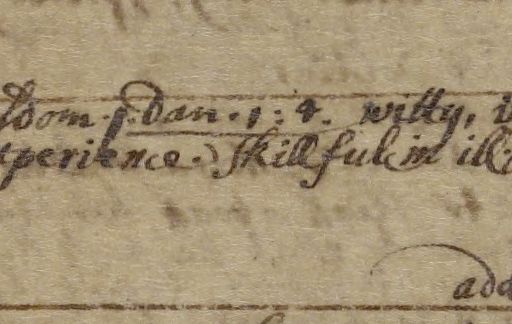 sdom. 1. dan. 1: 4. witty, i
xperience. Skillful in ill
add